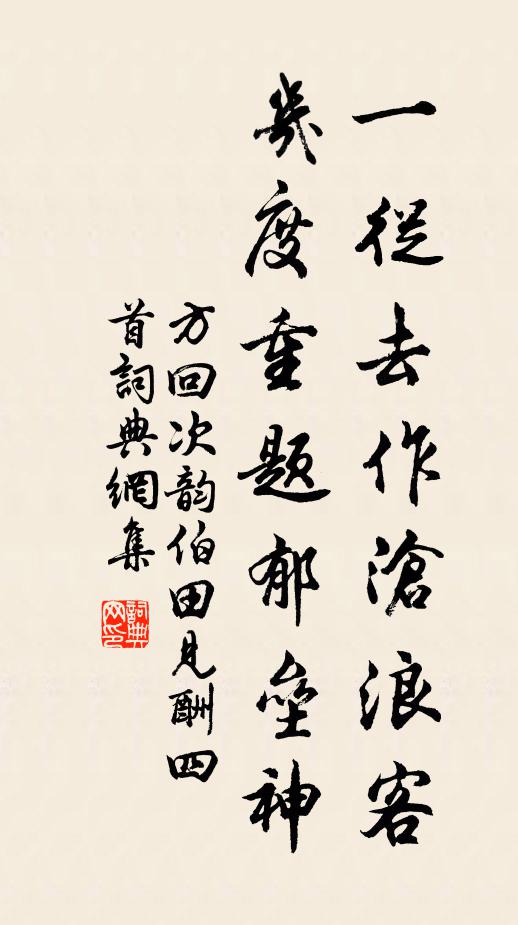 一從去作滄浪客
幾度重題郁壘神
方回次韵伯田見酬四
首詞典網集
詞典
网印